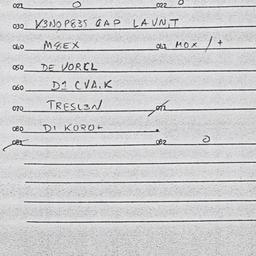 021 0 022 0
030 V3NOP83T GAP LAUNIT
040 M8EX 041 MOX / +
050 DE VORCL
060 D1 CVA.K
070 TRESL3N 071
080 D1 KORO+
081 082 0